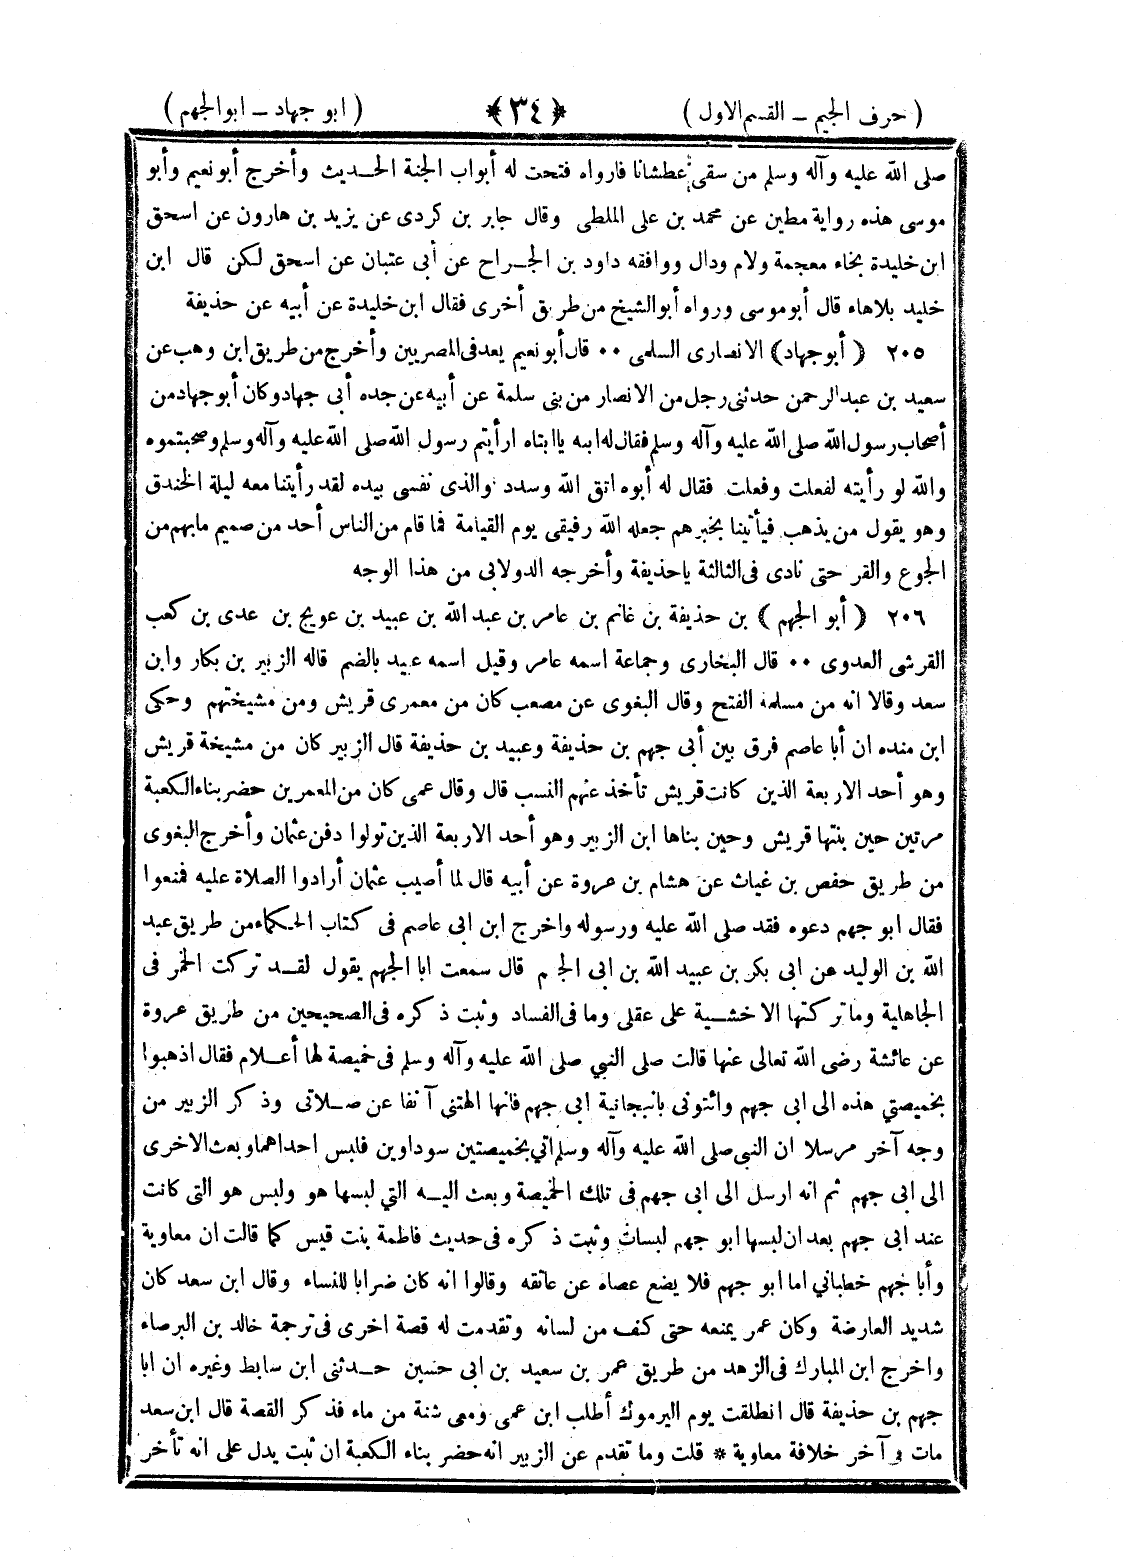 ( حرف الجيم – القسم الاول ) ﴿٣٤﴾ ( ابو جهاد – ابوالجهم )
صلى الله عليه وآله وسلم من سقى عطشانا فارواه فتحت له أبواب الجنة الحديث وأخرج أبونعيم وأبو
موسى هذه رواية مطين عن محمد بن على الملطى وقال جابر بن كردى عن يزيد بن هارون عن اسحق
ابن خليدة بخاء معجمة ولام ودال ووافقه داود بن الجراح عن أبى عتبان عن اسحق لكن قال ابن
خليد بلاهاء قال أبوموسى ورواه أبوالشيخ من طريق أخرى فقال ابن خليدة عن أبيه عن حذيفة
٢٠٥ ( أبوجهاد) الانصارى السلمى ٠٠ قال أبونعيم يعد فى المصريين وأخرج من طريق ابن وهب عن
سعيد بن عبدالرحمن حدثنى رجل من الانصار من بنى سلمة عن أبيه عن جده أبى جهاد وكان أبوجهاد من
أصحاب رسول الله صلى الله عليه وآله وسلم فقال له ابنه يا ابتاه ارأيتم رسول الله صلى الله عليه وآله وسلم وصحبتموه
والله لو رأيته لفعلت وفعلت فقال له أبوه اتق الله وسدد والذى نفسى بيده لقد رأيتنا معه ليلة الخندق
وهو يقول من يذهب فيأتينا بخبرهم جعله الله رفيقى يوم القيامة فما قام من الناس أحد من صميم مابهم من
الجوع والقر حتى نادى فى الثالثة ياحذيفة وأخرجه الدولابى من هذا الوجه
٢٠٦ ( أبو الجهم ) بن حذيفة بن غانم بن عامر بن عبد الله بن عبيد بن عويج بن عدى بن كعب
القرشى العدوى ٠٠ قال البخارى وجماعة اسمه عامر وقيل اسمه عبيد بالضم قاله الزبير بن بكار وابن
سعد وقالا انه من مسلمة الفتح وقال البغوى عن مصعب كان من معمرى قريش ومن مشيختهم وحكى
ابن منده ان أبا عاصم فرق بين أبى جهم بن حذيفة وعبيد بن حذيفة قال الزبير كان من مشيخة قريش
وهو أحد الاربعة الذين كانت قريش تأخذ عنهم النسب قال وقال عمى كان من المعمرين حضر بناء الكعبة
مرتين حين بنتها قريش وحين بناها ابن الزبير وهو أحد الاربعة الذين تولوا دفن عثمان وأخرج البغوى
من طريق حفص بن غياث عن هشام بن عروة عن أبيه قال لما أصيب عثمان أرادوا الصلاة عليه فمنعوا
فقال ابو جهم دعوه فقد صلى الله عليه ورسوله واخرج ابن ابى عاصم فى كتاب الحكماء من طريق عبد
الله بن الوليد عن ابى بكر بن عبيد الله بن ابى الجهم قال سمعت ابا الجهم يقول لقد تركت الخمر فى
الجاهلية وما تركتها الا خشية على عقلى وما فى الفساد وثبت ذكره فى الصحيحين من طريق عروة
عن عائشة رضى الله تعالى عنها قالت صلى النبي صلى الله عليه وآله وسلم فى خميصة لها أعلام فقال اذهبوا
بخميصتي هذه الى ابى جهم وائتونى بانبجانية ابى جهم فانها الهتنى آنفا عن صلاتى وذكر الزبير من
وجه آخر مرسلا ان النبى صلى الله عليه وآله وسلم اتي بخميصتين سوداوين فلبس احداهما وبعث الاخرى
الى ابى جهم ثم انه ارسل الى ابى جهم فى تلك الخميصة وبعث اليه التي لبسها هو ولبس هو التى كانت
عند ابى جهم بعد ان لبسها ابو جهم لبسات وثبت ذكره فى حديث فاطمة بنت قيس كما قالت ان معاوية
وأبا جهم خطباني اما ابو جهم فلا يضع عصاه عن عاتقه وقالوا انه كان ضرابا للنساء وقال ابن سعد كان
شديد العارضة وكان عمر يمنعه حتى كف من لسانه وتقدمت له قصة اخرى فى ترجمة خالد بن البرصاء
واخرج ابن المبارك فى الزهد من طريق عمر بن سعيد بن ابى حسين حدثنى ابن سابط وغيره ان ابا
جهم بن حذيفة قال انطلقت يوم اليرموك أطلب ابن عمى ومعى شنة من ماء فذكر القصة قال ابن سعد
مات فى آخر خلافة معاوية * قلت وما تقدم عن الزبير انه حضر بناء الكعبة ان ثبت يدل على انه تأخر